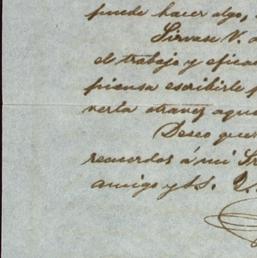 puede hacer algo,
Sirvase V.
el trabajo y
piensa escribirle
verla otravez aqui
Deseo que
recuerdos á mi Sr
amigo y S.S. Q.